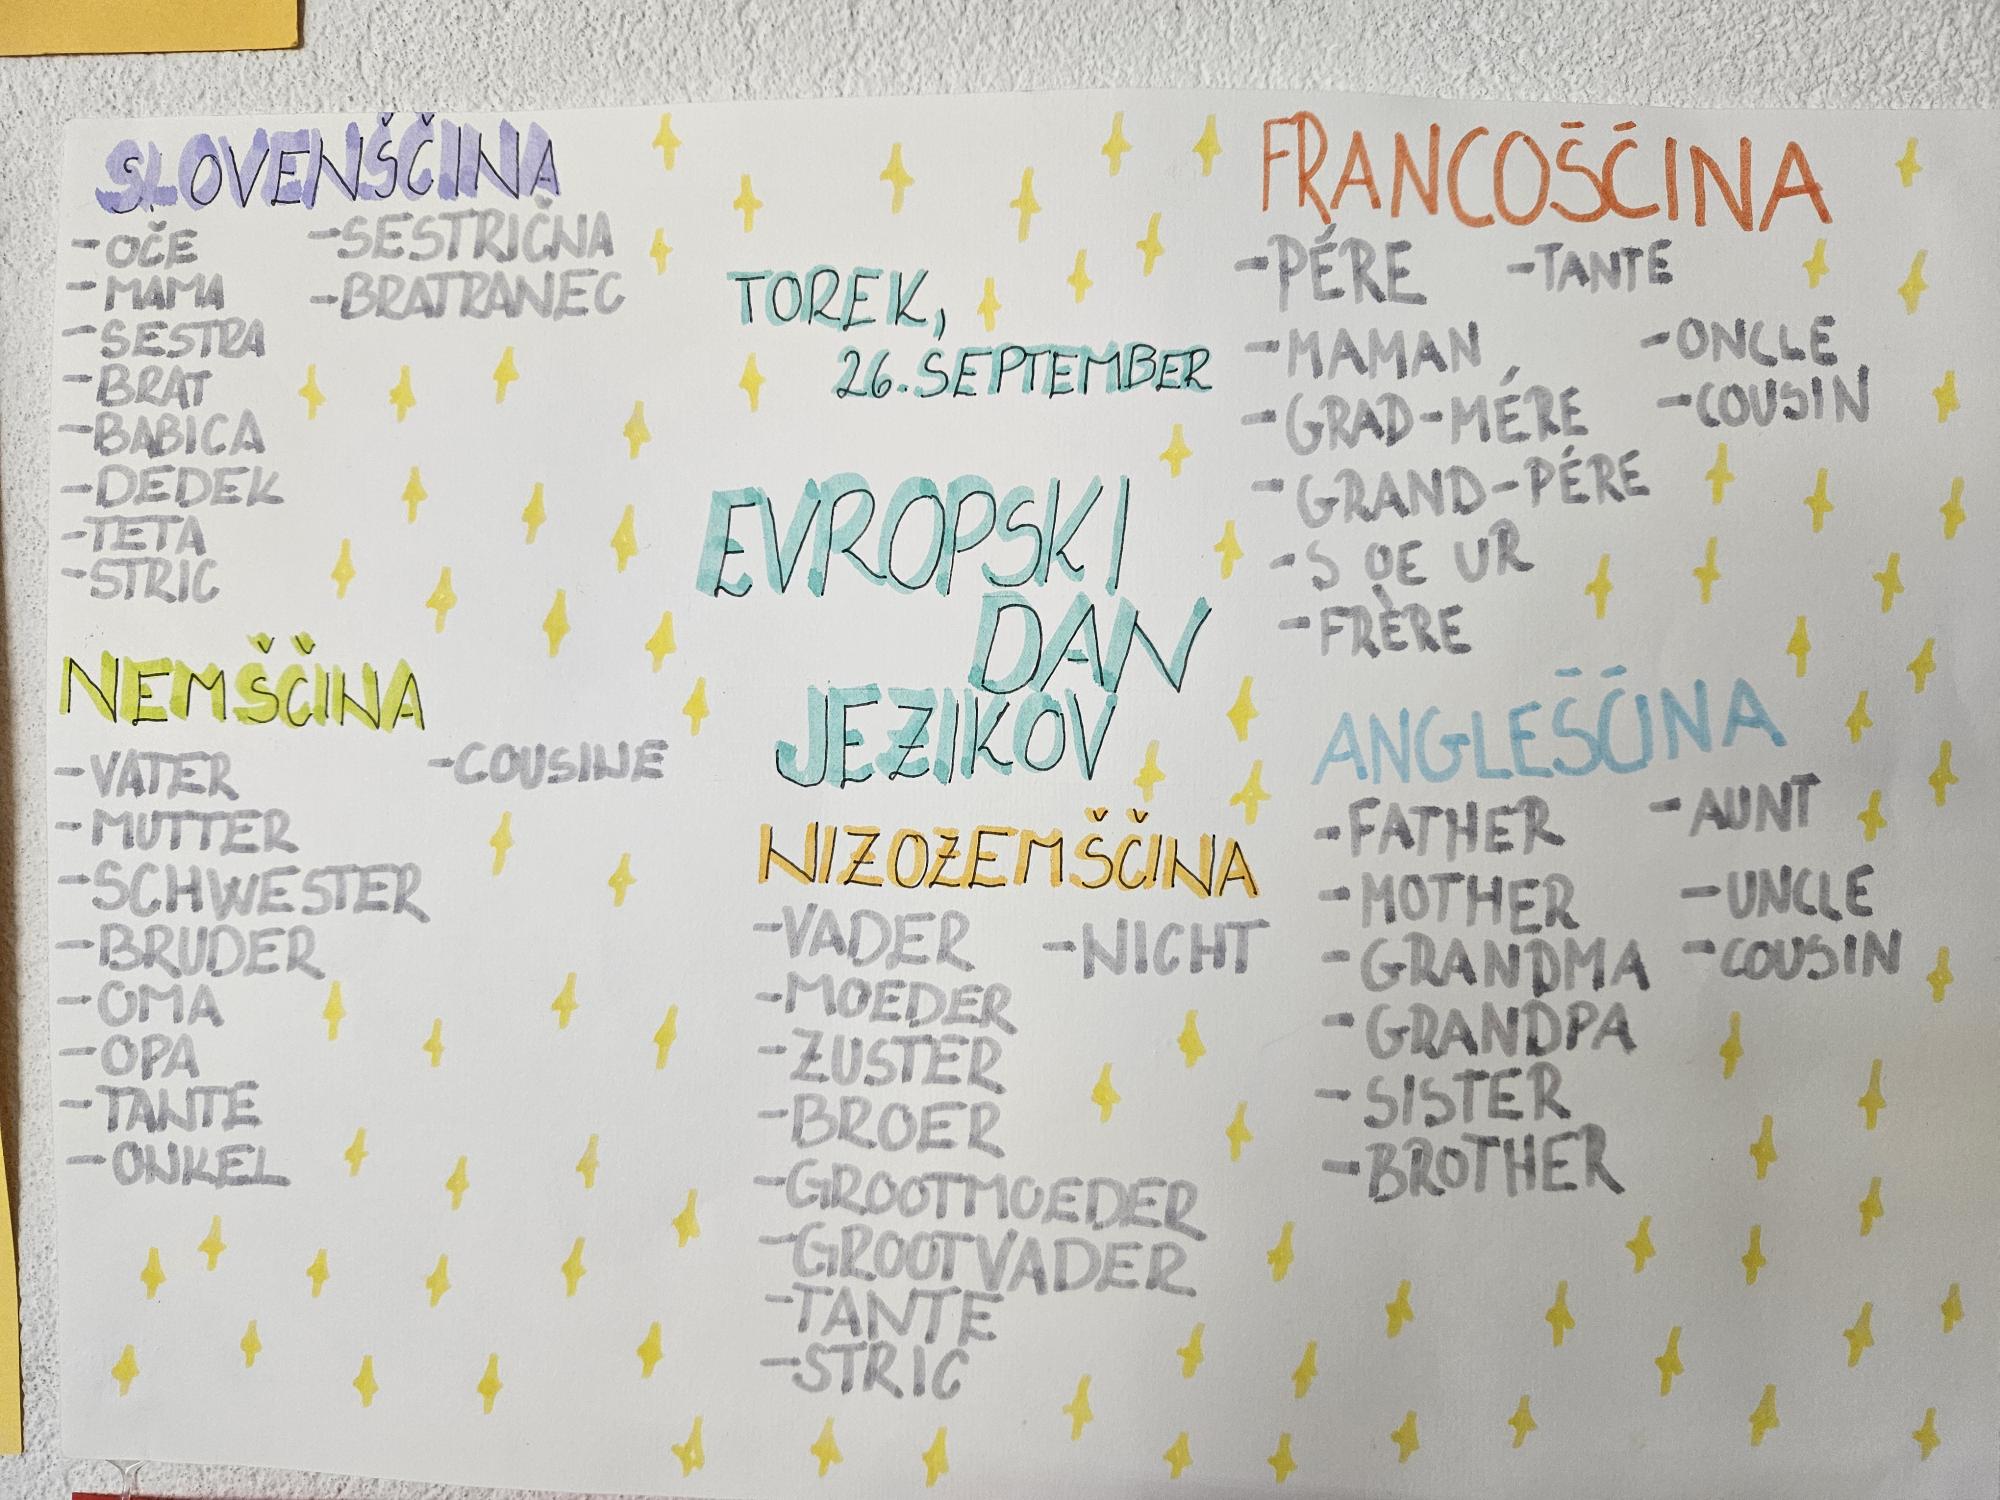 SLOVENŠČINA
-OČE
-MAMA
-SESTRA
-BRAT
-BABICA
-DEDEK
-TETA
-STRIC
-SESTRIČNA
-BRATRANEC
NEMŠČINA
-VATER
-MUTTER
-SCHWESTER
-BRUDER
-OMA
-OPA
-TANTE
-ONKEL
-COUSINE
TOREK,
26. SEPTEMBER
EVROPSKI
DAN
JEZIKOV
NIZOZEMŠČINA
-VADER
-MOEDER
-ZUSTER
-BROER
-GROOTMOEDER
-GROOTVADER
-TANTE
-STRIC
-NICHT
FRANCOŠČINA
-PÉRE
-MAMAN
-GRAD-MÉRE
-GRAND-PÉRE
-S OE UR
-FRÈRE
-TANTE
-ONCLE
-COUSIN
ANGLEŠČINA
-FATHER
-MOTHER
-GRANDMA
-GRANDPA
-SISTER
-BROTHER
-AUNT
-UNCLE
-COUSIN